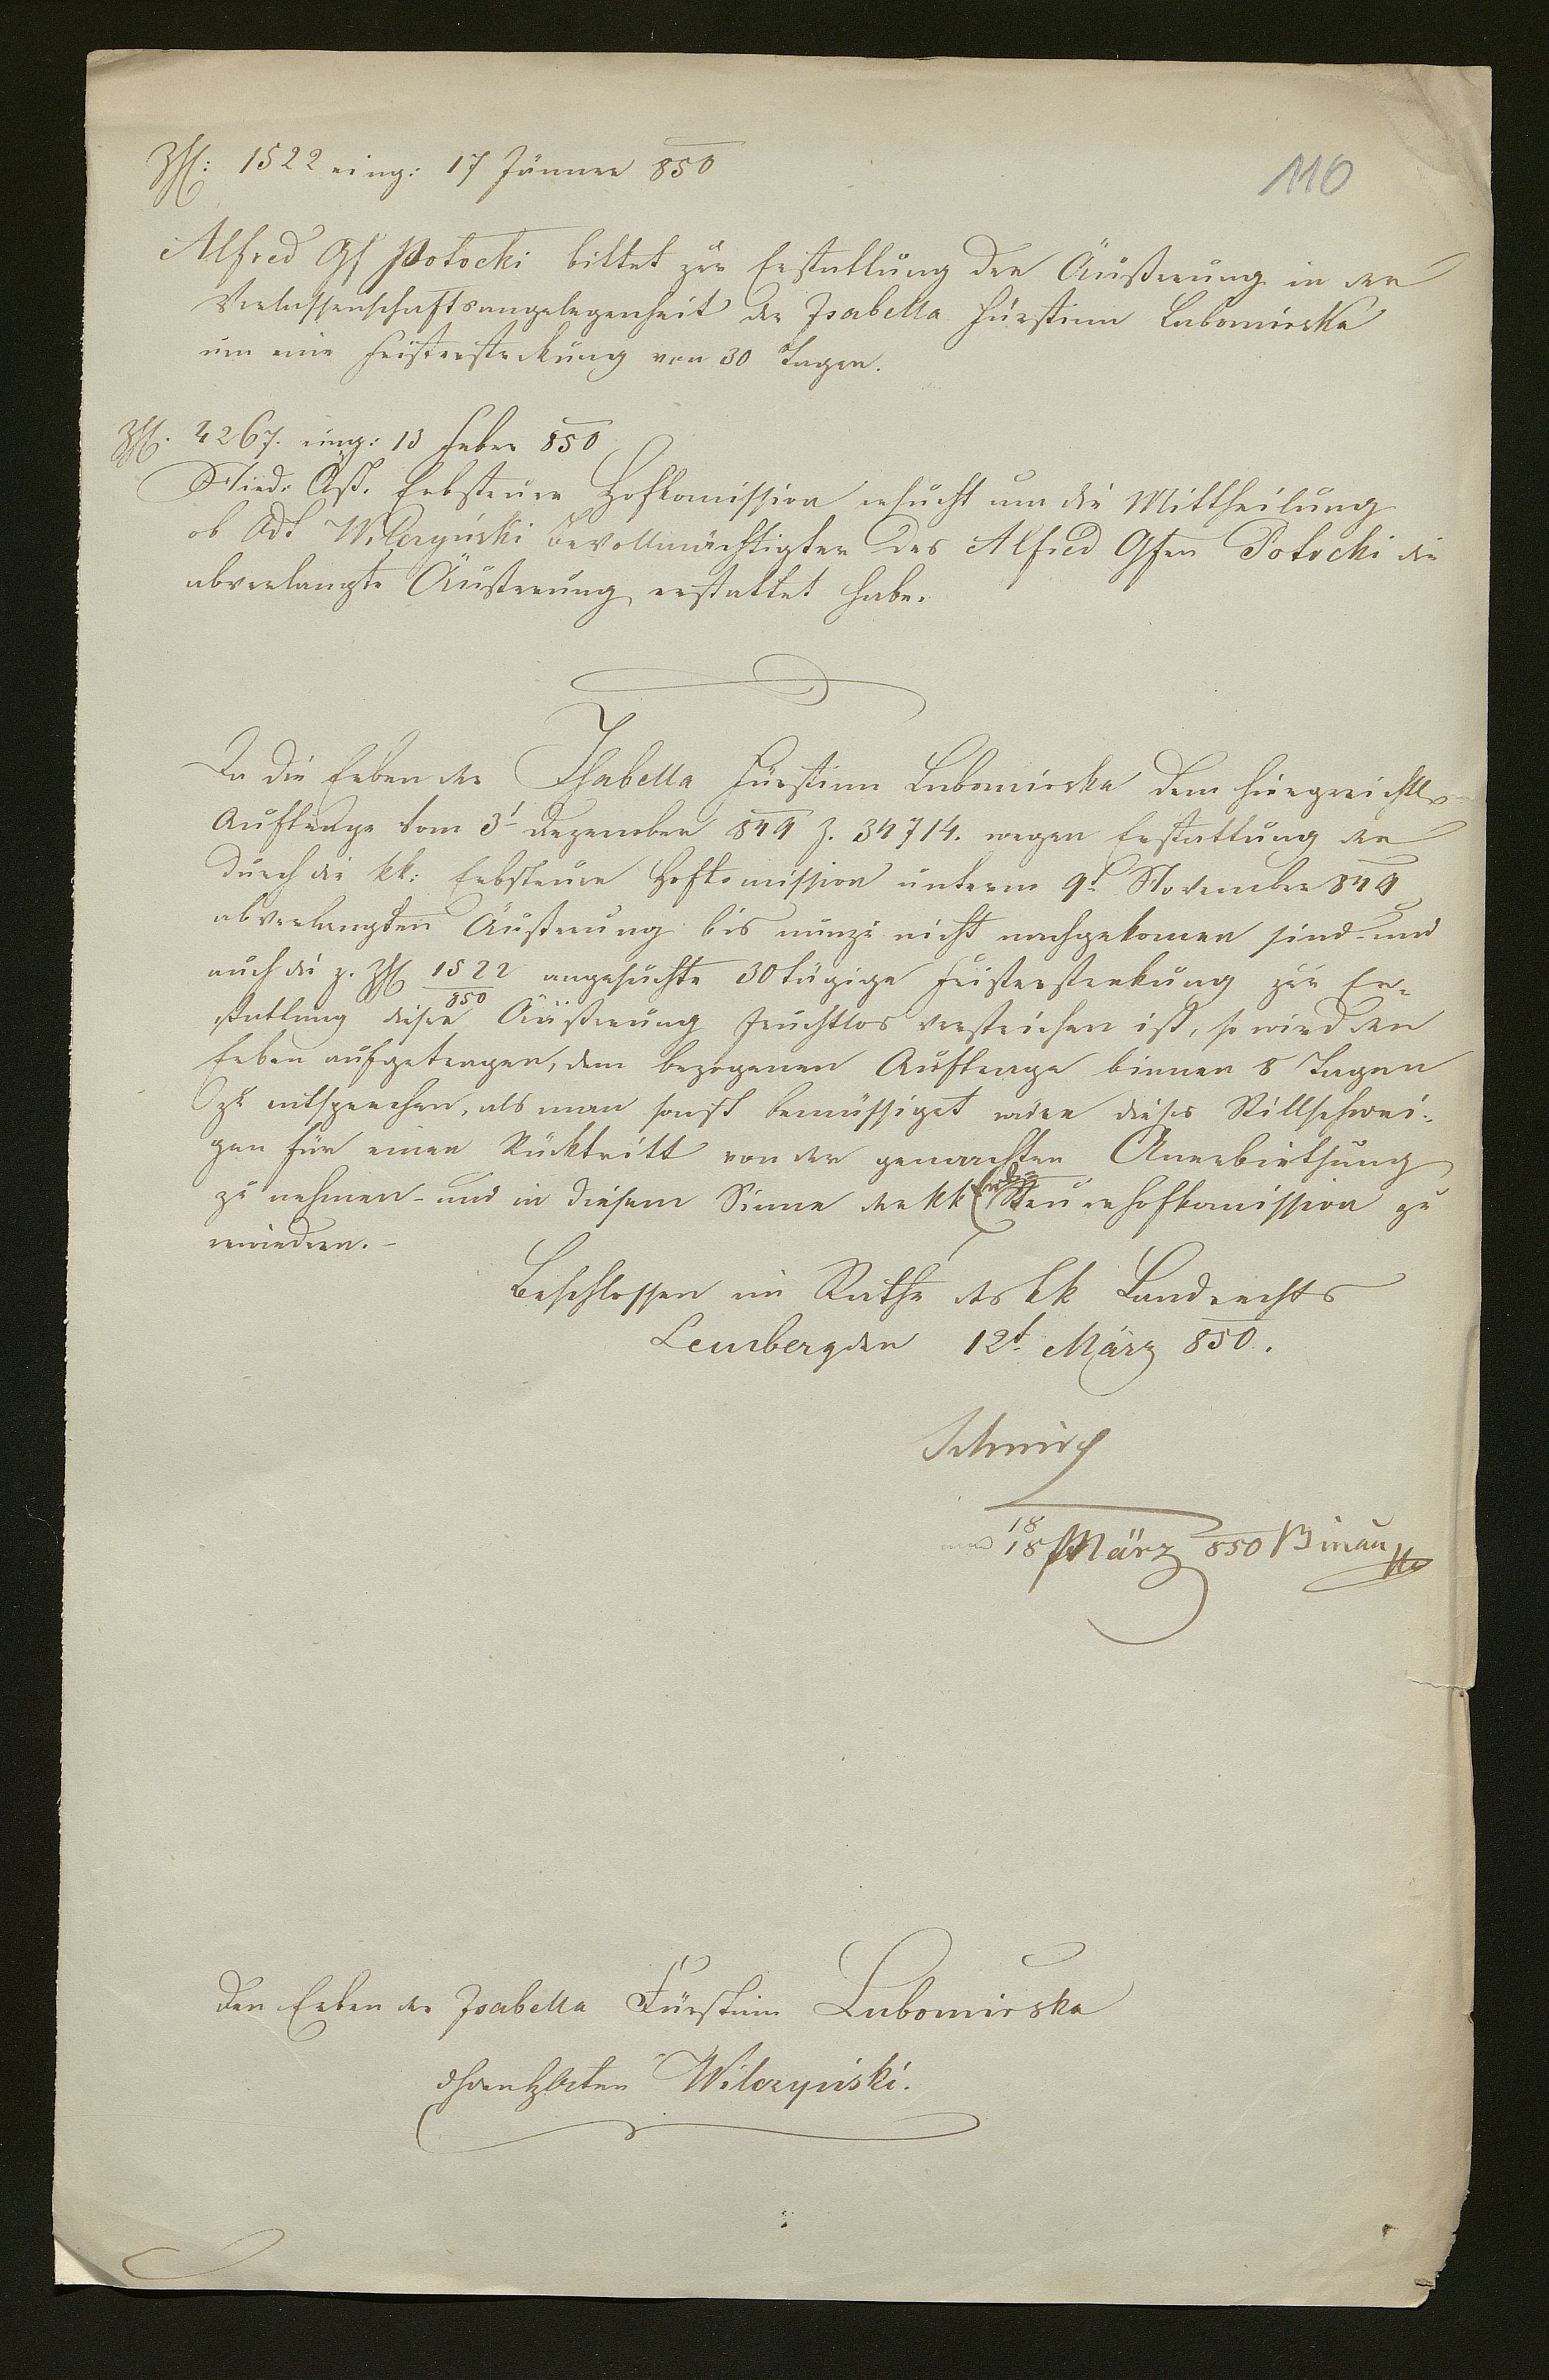 Zhl: 1522 eing: 17 Jänner 850
110
Alfred Gf Potocki bittet zur Erstattung der Äußerung in der
Verlassenschaftsangelegenheit der Isabella Fürstinn Lubomirska
um eine Fristerstreckung von 30 Tagen.
Zhl. 4267. eing: 13 Feber 850
Nied: Öst. Erbsteuer Hofkomission ersucht um die Mittheilung
ob Adt Wilczyński Bevollmächtigter des Alfred Gfen Potocki die
abverlangte Äußerung erstattet habe.
Da die Erben der Isabella Fürstinn Lubomirska dem hiergerichtl
Auftrage vom 3t Dezember 849 Z. 34714. wegen Erstattung der
durch die kk: Erbsteuer Hofkomission unterm 9t November 849
abverlangten Äußerung bis nunzu nicht nachgekomen sind und
auch die z. Zhl 1522/850 angesuchte 30tägige Fristerstrekung zur Er-
stattung dieser Äußerung fruchtlos verstrichen ist, so wird den
Erben aufgetragen, dem bezogenen Auftrage binnen 8 Tagen
zu entsprechen, als man sonst bemüssiget wäre dieses Stillschwei-
gen für einen Rücktritt von der gemachten Anerbiethung
zu nehmen und in diesem Sinne der kk Erb Steuerhofkomission zu
erwiedern.
Beschlossen im Rathe des kk Landrechts
Lemberg den 12t März 850.
Schmid
18
18 März 850 Binau
Den Erben der Isabella Fürstinn Lubomirska
Wilczyński.